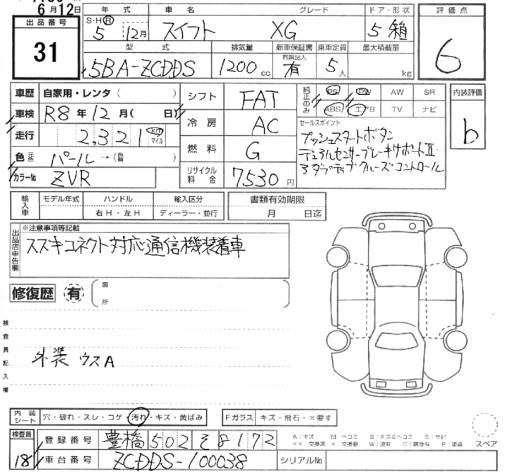 6月12日
年式 車名 グレード ドア・形状 評価点
出品番号
S・H・Ⓡ 5年 12月 スイフト XG 5 箱
31
型式 排気量 新車保証書 乗車定員 最大積載量
取説記入
5BA-ZCDDS 1200cc 有 5人 kg
6
車歴 自家用・レンタ( )
シフト FAT
純正のみ PS PW AW SR
ABS エアB TV ナビ
内装評価
b
車検 R8年12月( 日)
冷房 AC
セールスポイント
走行 2,321 マイル
プッシュスタートボタン
デュアルセンサーブレーキサポートⅡ
アダプティブクルーズコントロール
色 パール→( )
燃料 G
カラーNo. ZVR
リサイクル料金 7530円
輸入車 モデル年式 ハンドル 輸入区分
年 右H・左H ディーラー・並行
書類有効期限
月 日迄
出品店申告欄
※注意事項等記載
スズキコネクト対応通信機装着車
修復歴 有 箇所
検査員記入欄
外装 ウスA
内装シート 穴・破れ・スレ・コゲ・汚れ・キズ・黄ばみ
Fガラス キズ・飛石・×要す
スペア
検査員
18
登録番号 豊橋502 る 8172
車台番号 ZCDDS-100038
シリアルNo.